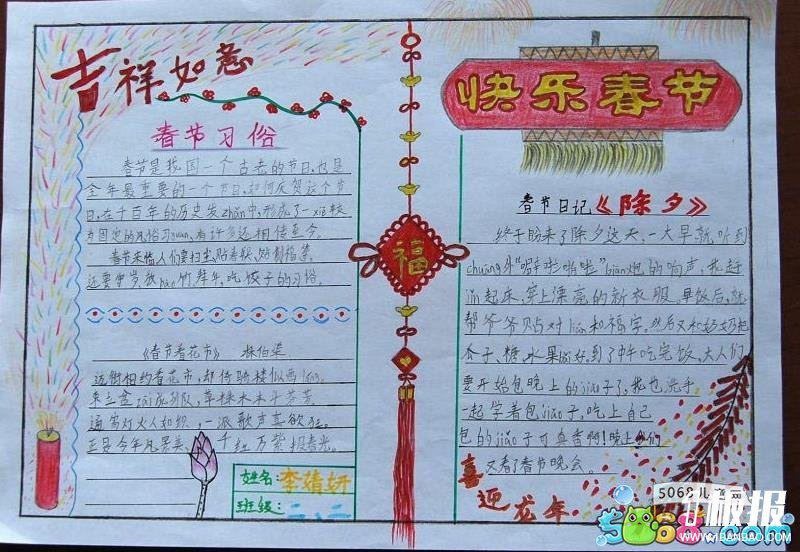 吉祥如意
春节习俗
春节是我国一个古老的节日,也是
全年最重要的一个节日,如何庆贺这个节
日,在千百年的历史发zhǎn中,形成了一xiē较
为固定的风俗习guàn,有许多还相传至今。
春节来临人们要扫尘,贴春联,贴倒福,
还要守岁,放bào竹,拜年,吃饺子的习俗。
《春节看花市》 林伯渠
迈街相约看花市,却倚骑楼似画lang。
束立盆zāi成列队,草株木本斗芬芳
通宵灯火人如织,一派歌声喜欲狂。
正是今年风景美,千红万紫报春光。
姓名:李婧妍
班级:二、二
福
快乐春节
春节日记《除夕》
终于盼来了除夕这天,一大早就听到
chuāng外“噼啦啪啦”biān炮的响声,我赶
jǐn起床,穿上漂亮的新衣服。早饭后,就
帮爷爷贴对lián和福字。然后又和奶奶把
瓜子、糖、水果bǎi好,到了中午吃完饭,大人们
要开始包晚上的jiǎo子了,我也洗手
一起学着包jiǎo子,吃上自己
包的jiǎo子可真香啊!晚上我们
又看了春节晚会。
喜迎龙年
5068儿童网
5068.com
板报
WWW.1BANBAO.COM